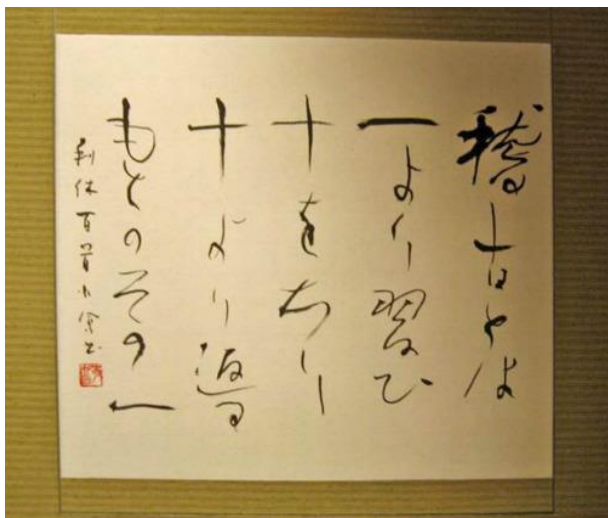 稽古とは
一より習ひ
十を知り
十より返る
もとのその一
利休百首